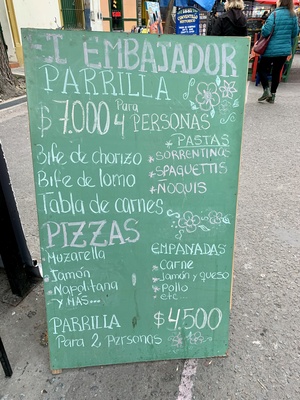 El EMBAJADOR
PARRILLA
$7.000 Para 4 PERSONAS
PASTAS
Bife de chorizo
* SORRENTINOS
Bife de lomo
* SPAGUETTIS
Tabla de carnes
* ÑOQUIS
PIZZAS
• Muzarella
• Jamón
• Napolitana
- Y MAS...
EMPANADAS
• Carne
• Jamón y queso
• Pollo
• etc...
PARRILLA $4,500
Para 2 Personas